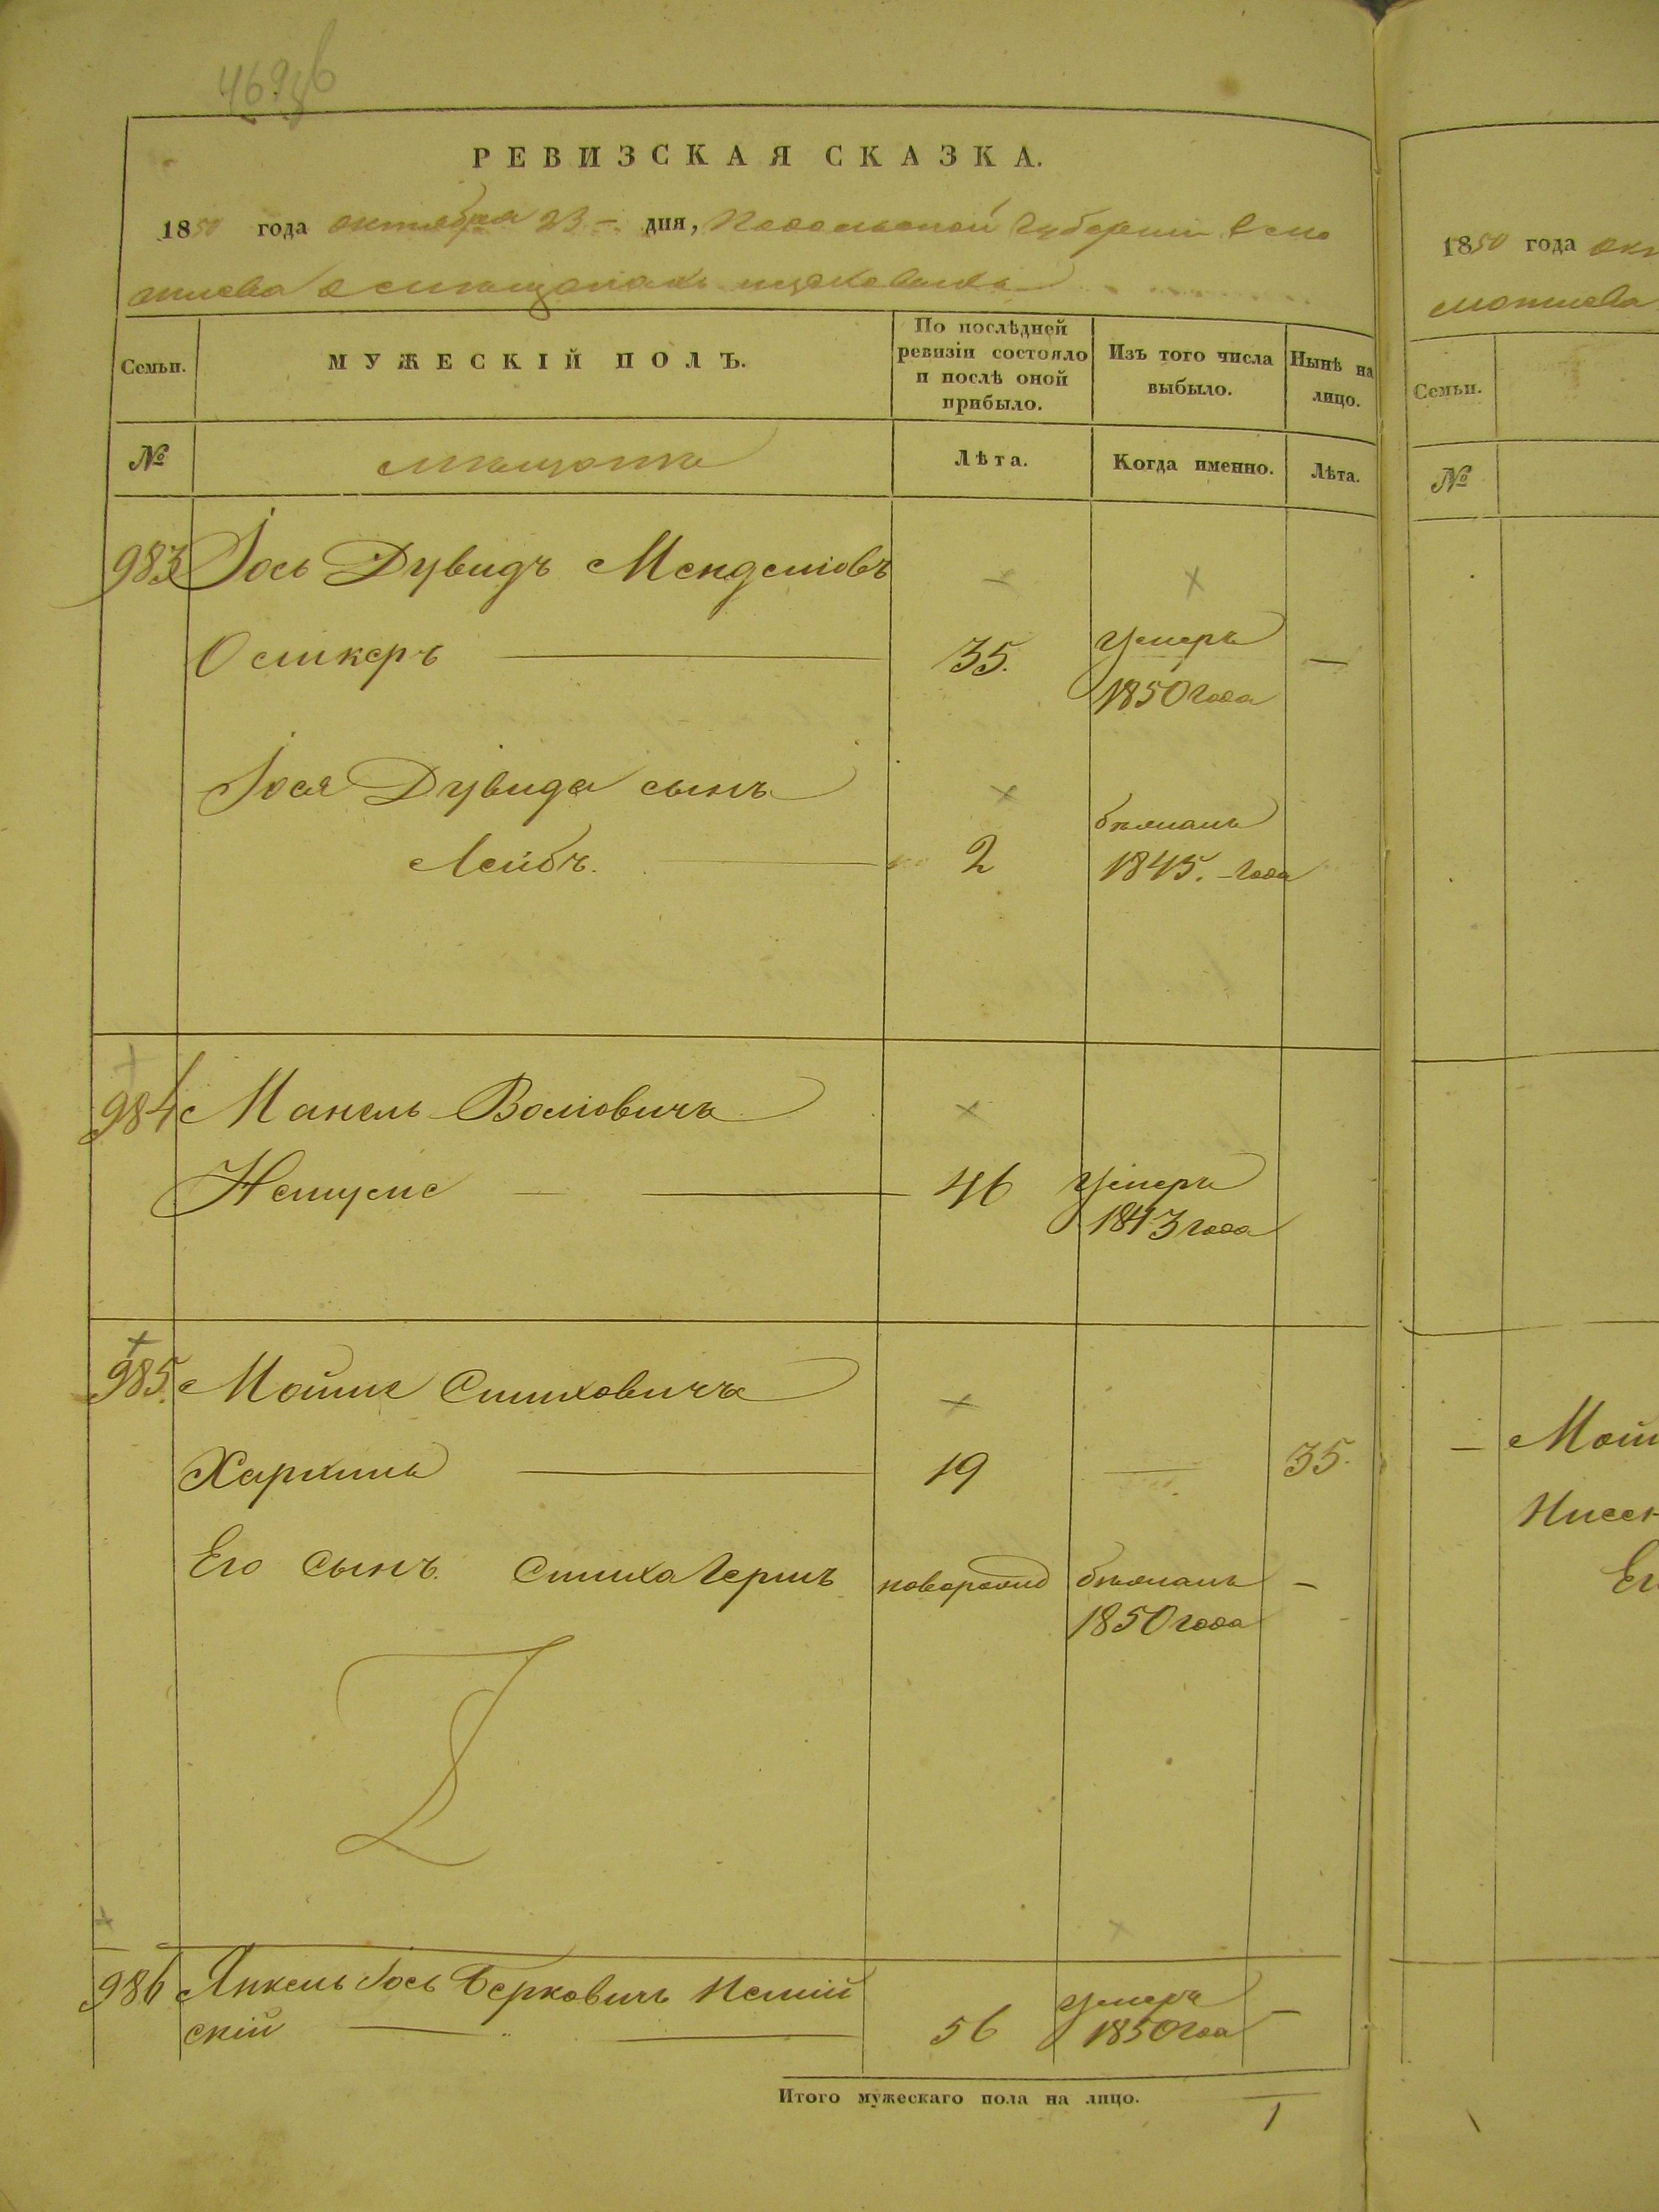 469
РЕВИЗСКАЯ СКАЗКА.
1850 года октября 23 – дня, Подольской Губернии
Семьи.
МУЖЕСКІЙ ПОЛЪ.
По послѣдней
ревизіи состояло
и послѣ оной
прибыло.
Изъ того числа
выбыло.
Нынѣ на
лицо.
№
мѣщане
Лѣта.
Когда именно.
Лѣта.
983 Іось Дувидъ Менделіовъ
Оликеръ 35. умеръ —
1850 года
Іося Дувида сынъ
Лейбъ. 2 бѣжалъ
1845. года
984 Манель Воліовичъ
46 умеръ
1843 года
985. Мошко Симховичъ
19 — 35.
Его Сынъ. Симха Гершъ новорожд бѣжалъ –
1850 года
986 Янкель Іось Берковичъ
скій 56 умеръ –
1850 года
Итого мужескаго пола на лицо. 1
1850 года
Семьи.
№